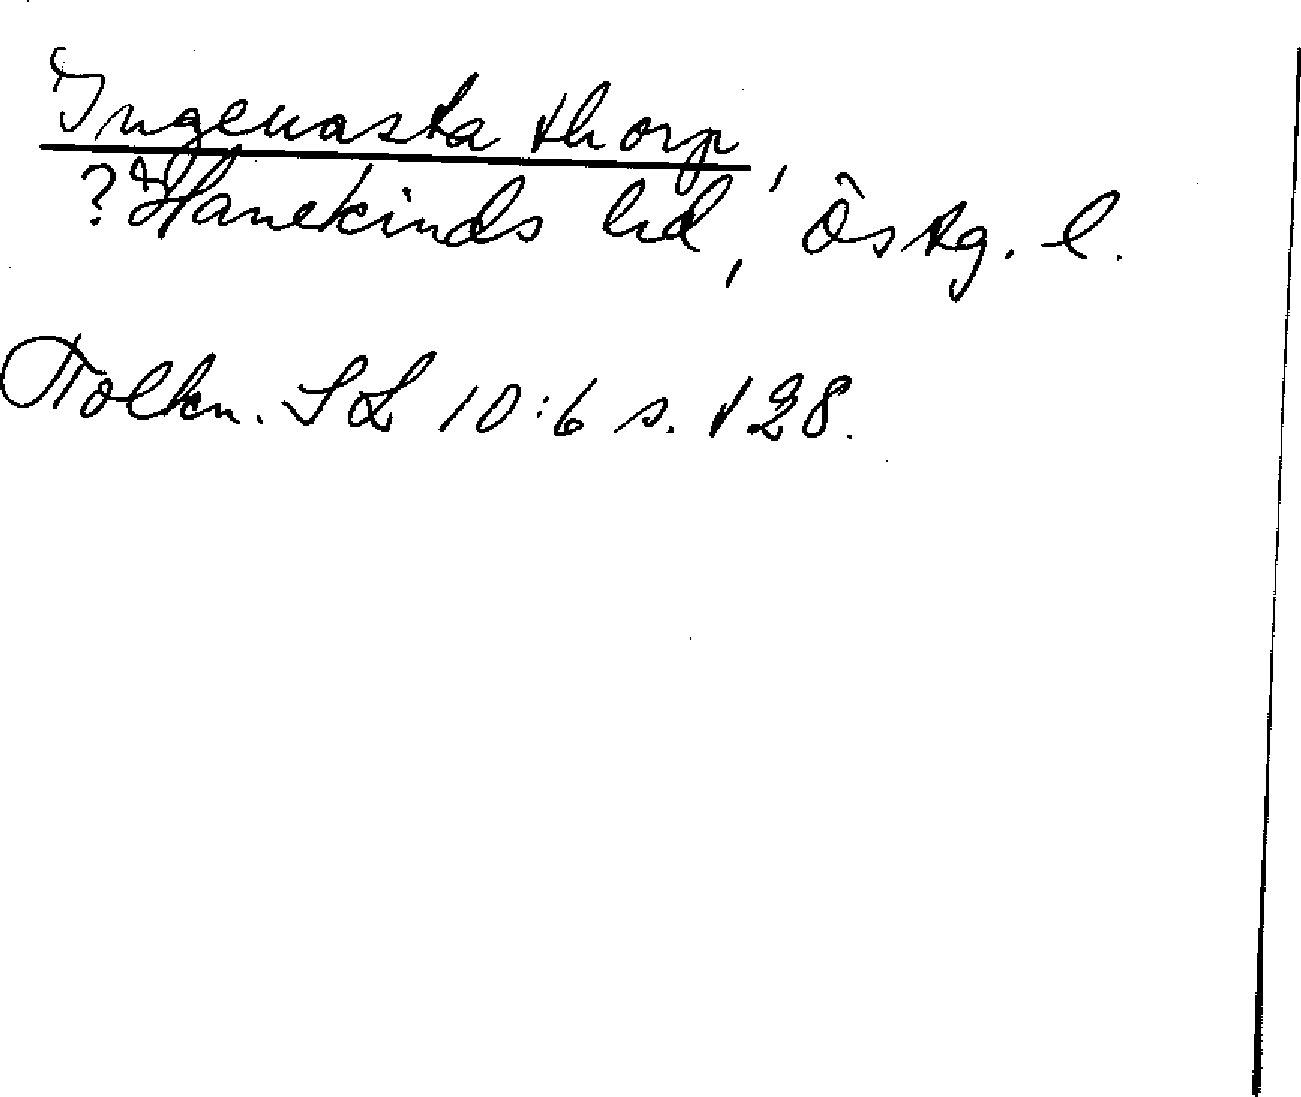 Ingeuasta thorp,
? Hanekinds hd, Östg. l.
Tolkn. SL 10:6 s. 128.